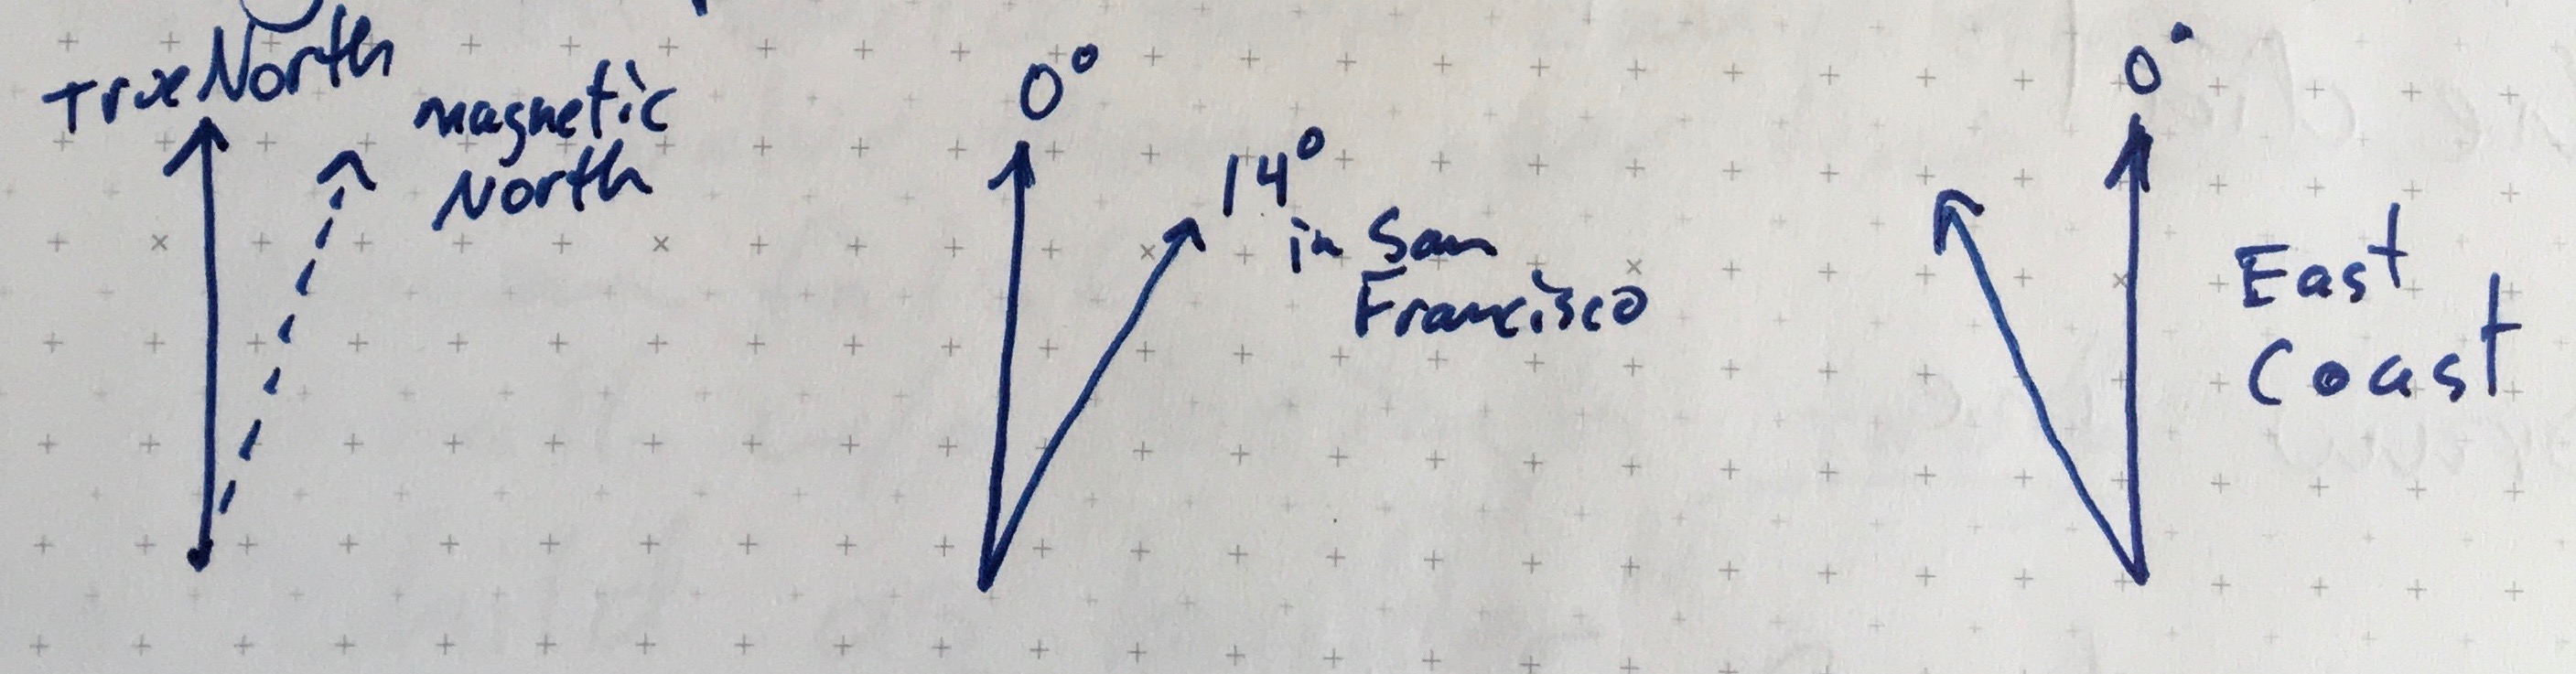 True North
magnetic
North
0°
14°
in San
Francisco
0°
East
Coast